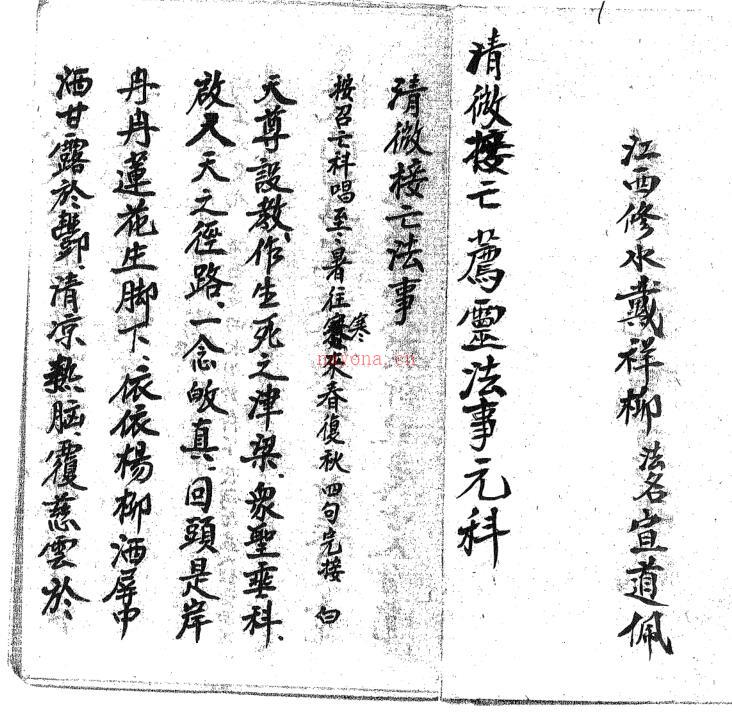 江西修水戴祥柳法名宣道佩
清微接亡薦靈法事元科
清微接亡法事
按召亡科唱至、暑往寒來春復秋四句完接 白
天尊設教、作生死之津梁、衆聖垂科、
啟人天之徑路、一念皈真、回頭是岸
冉冉蓮花生脚下、依依楊柳洒屏中
洒甘露於酆、清凉熱腦、覆慈雲於
nayona.cn